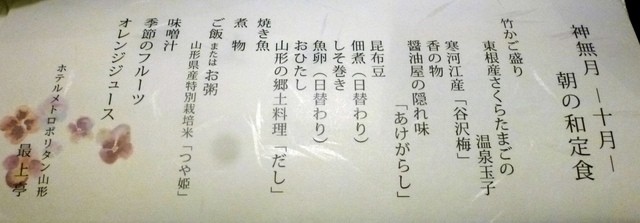 神無月 ―十月―
朝の和定食
竹かご盛り
東根産さくらたまごの
温泉玉子
寒河江産「谷沢梅」
香の物
醤油屋の隠れ味
「あけがらし」
昆布豆
佃煮（日替わり）
しそ巻き
魚卵（日替わり）
おひたし
山形の郷土料理「だし」
焼き魚
煮物
ご飯 または お粥
山形県産特別栽培米「つや姫」
味噌汁
季節のフルーツ
オレンジジュース
ホテルメトロポリタン山形
最上亭